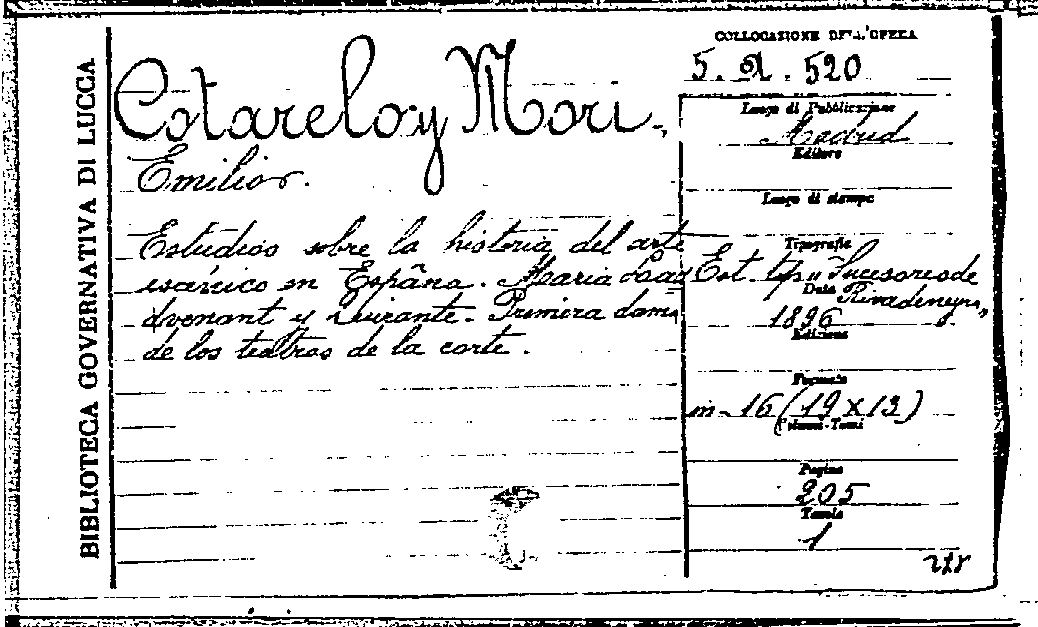 BIBLIOTECA GOVERNATIVA DI LUCCA
Cotarelo y Mori -
Emilio.
Estudios sobre la historia del arte
escénico en España. Maria Lad
dvenant y Quirante. Primera dama
de los teatros de la corte.
COLLOCAZIONE DELL'OPERA
5. A. 520
Luogo di Pubblicazione
Madrid
Editore
Luogo di stampa
Tipografia
Est. tip. "Sucesores de
Rivadeneyra"
Data
1896
Edizione
Formato
in-16 (19 x 13)
Volumi-Tomi
Pagine
205
Tavole
1